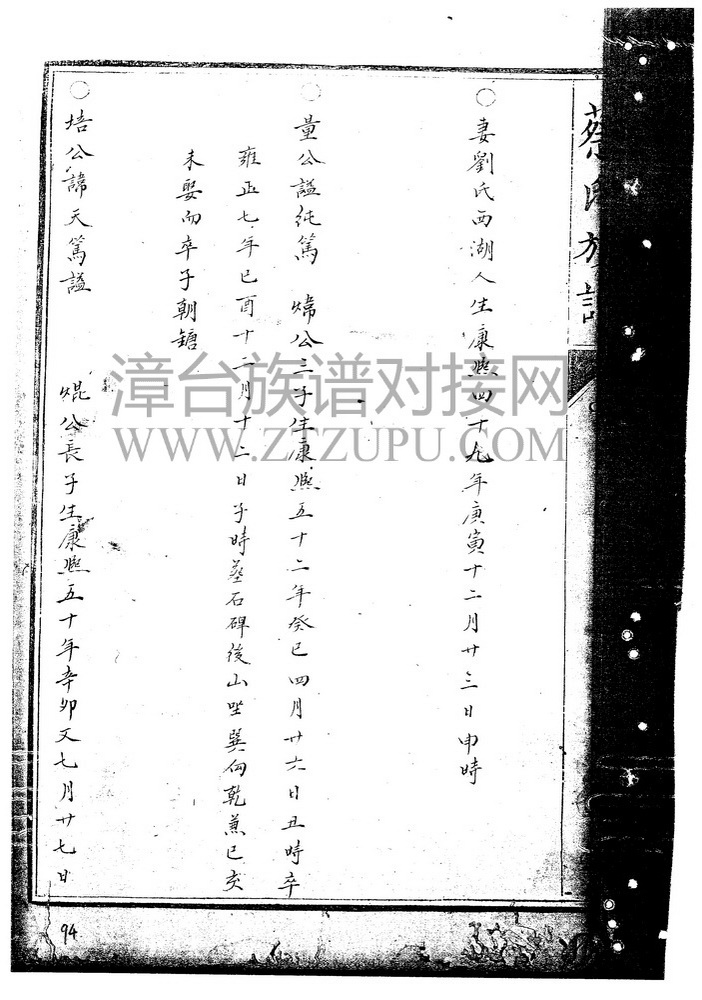 蔡氏族譜
○妻劉氏西湖人生康熙四十九年庚寅十二月廿三日申時
○量公謚純篤 煒公三子生康熙五十二年癸巳四月廿六日丑時卒
雍正七年巳酉十二月十二日子時墓石碑後山坐巽向乾兼巳亥
未娶而卒子朝
○培公諱天篤謚 焜公長子生康熙五十年辛卯又七月廿七日
94
漳台族谱对接网
WWW.ZTZUPU.COM